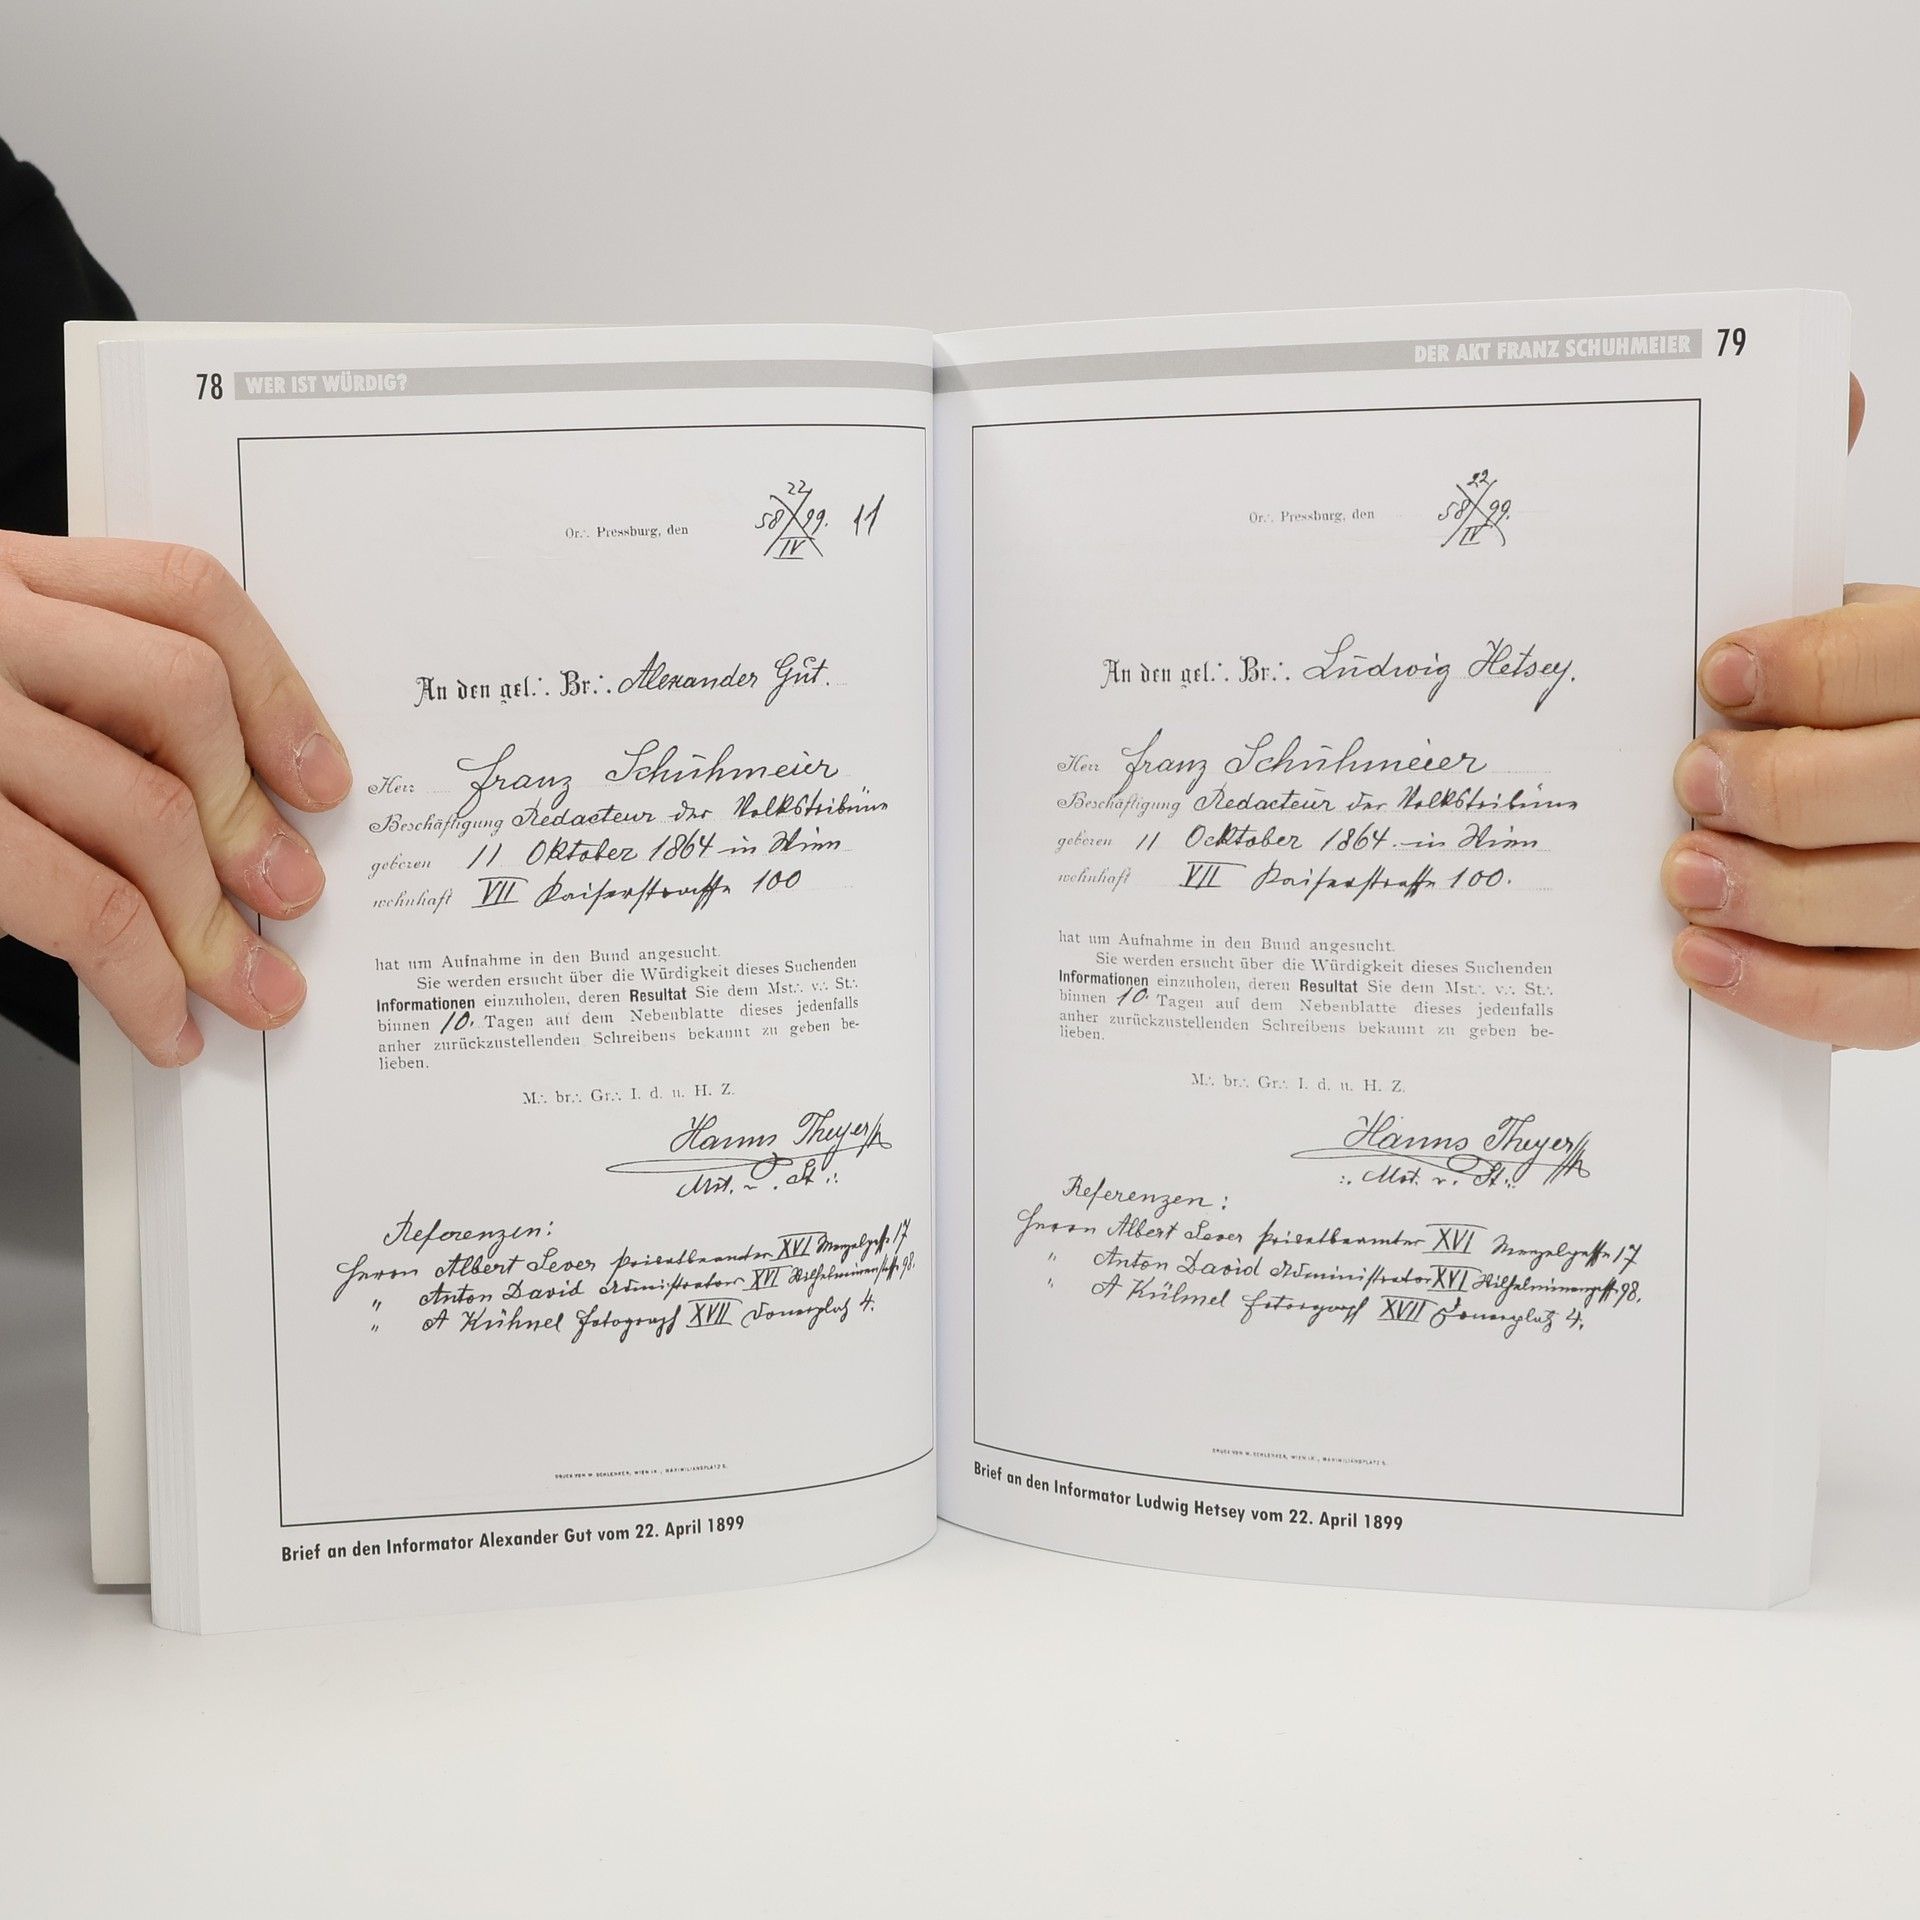 78 WER IST WÜRDIG?
22
58 99. 11
IV
Or∴ Pressburg, den
An den gel∴ Br∴ Alexander Gut.
Herr Franz Schuhmeier
Beschäftigung Redacteur der Volkstribüne
geboren 11 Oktober 1864 in Wien
wohnhaft VII Kaiserstrasse 100
hat um Aufnahme in den Bund angesucht.
Sie werden ersucht über die Würdigkeit dieses Suchenden
Informationen einzuholen, deren Resultat Sie dem Mst∴ v∴ St∴
binnen 10. Tagen auf dem Nebenblatte dieses jedenfalls
anher zurückzustellenden Schreibens bekannt zu geben be-
lieben.
M∴ br∴ Gr∴ I. d. u. H. Z.
Hanns Theyer
Mst. v. St∴
Referenzen:
Herrn Albert Sever Privatbeamter XVI Menzelgasse 17
" Anton David Administrator XVI 98.
" A Kühnel Fotograf XVII 4.
DRUCK VON W. SCHLENKER, WIEN IX., MAXIMILIANPLATZ 5.
Brief an den Informator Alexander Gut vom 22. April 1899
DER AKT FRANZ SCHUHMEIER 79
22
58 99.
IV
Or∴ Pressburg, den
An den gel∴ Br∴ Ludwig Hetsey.
Herr Franz Schuhmeier
Beschäftigung Redacteur der Volkstribüne
geboren 11 Ocktober 1864. in Wien
wohnhaft VII Kaiserstrasse 100.
hat um Aufnahme in den Bund angesucht.
Sie werden ersucht über die Würdigkeit dieses Suchenden
Informationen einzuholen, deren Resultat Sie dem Mst∴ v∴ St∴
binnen 10. Tagen auf dem Nebenblatte dieses jedenfalls
anher zurückzustellenden Schreibens bekannt zu geben be-
lieben.
M∴ br∴ Gr∴ I. d. u. H. Z.
Hanns Theyer
∴ Mst. v. St∴
Referenzen:
Herrn Albert Sever Privatbeamter XVI Menzelgasse 17
" Anton David Administrator XVI 98.
" A Kühnel XVII 4.
DRUCK VON W. SCHLENKER, WIEN IX., MAXIMILIANPLATZ 5.
Brief an den Informator Ludwig Hetsey vom 22. April 1899